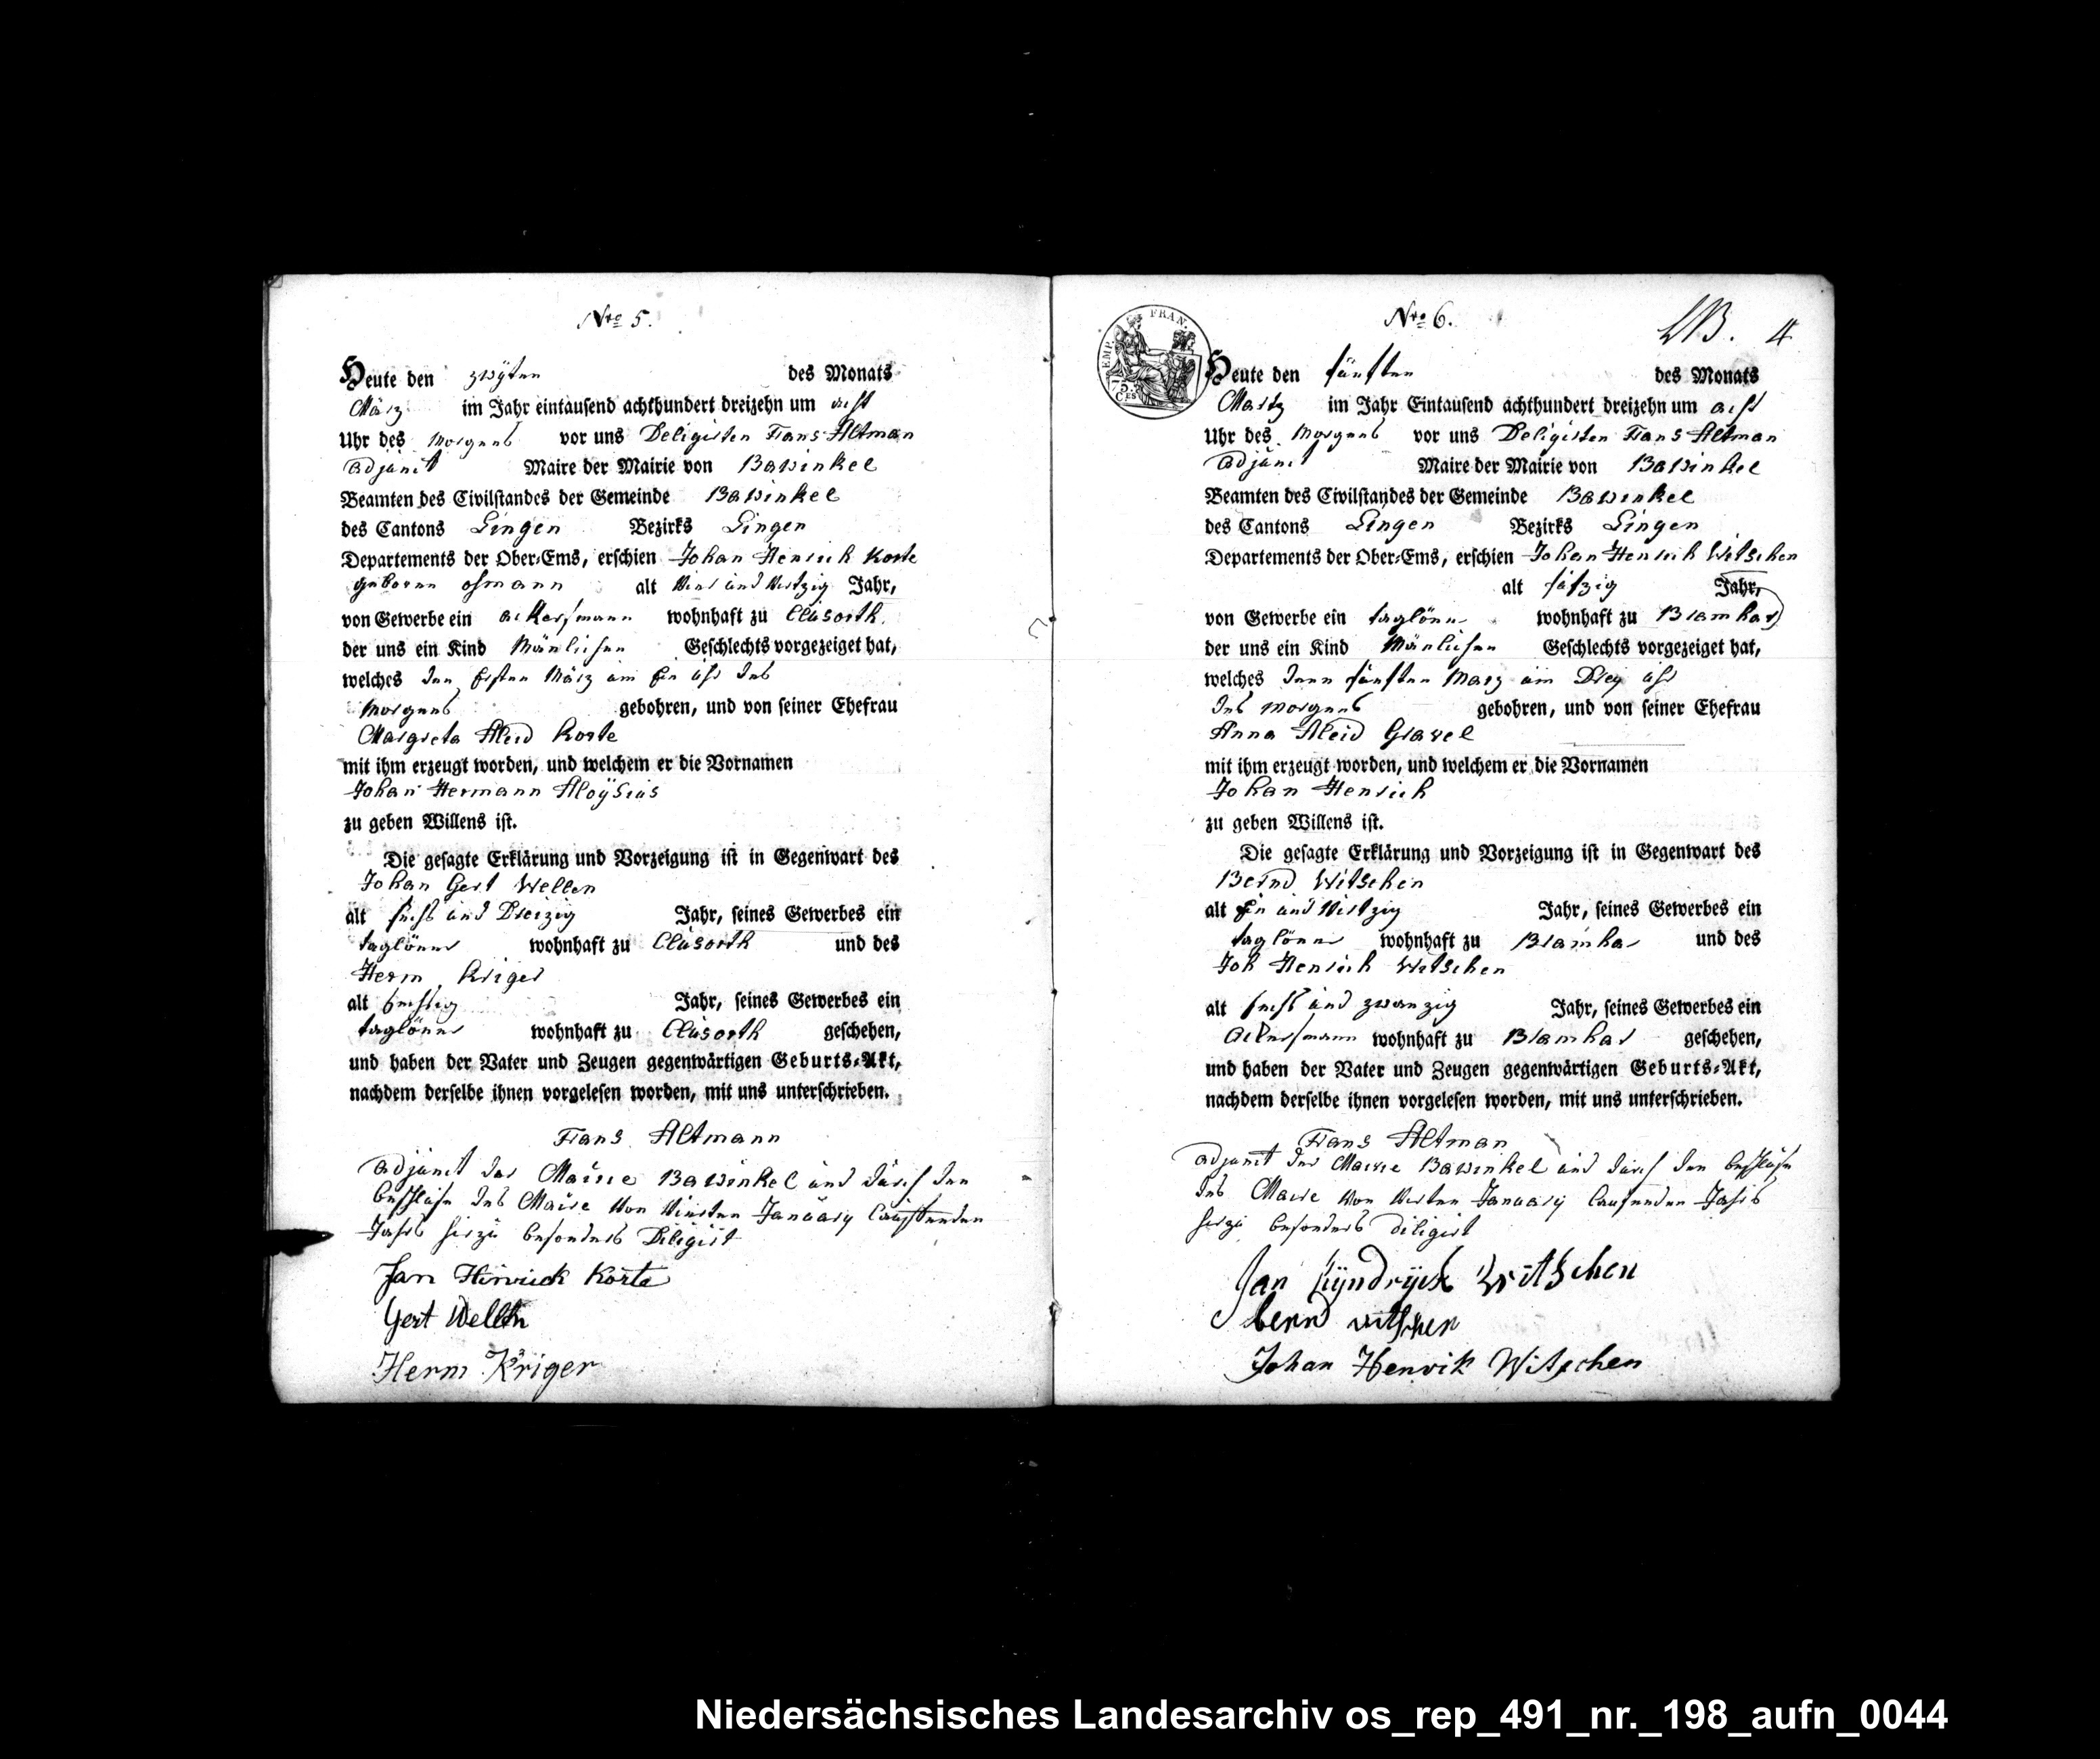 Nro 5.
Heute den zwÿten des Monats
März im Jahr eintausend achthundert dreizehn um acht
Uhr des Morgens vor uns Deligirten Frans Altman
adjunct Maire der Mairie von Bawinkel
Beamten des Civilstandes der Gemeinde Bawinkel
des Cantons Lingen Bezirks Lingen
Departements der Ober-Ems, erschien Johan Henrich Korte
geboren osmann alt Vier und Virtzig Jahr,
von Gewerbe ein ackersmann wohnhaft zu Clusorth.
der uns ein Kind Mänlichen Geschlechts vorgezeiget hat,
welches den Ersten März um Ein uhr des
Morgens gebohren, und von seiner Ehefrau
Margreta Aleid Korte
mit ihm erzeugt worden, und welchem er die Vornamen
Johan Hermann Aloÿsius
zu geben Willens ist.
Die gesagte Erklärung und Vorzeigung ist in Gegenwart des
Johan Gert Wellen
alt sechs und Dreizig Jahr, seines Gewerbes ein
taglöner wohnhaft zu Clusorth und des
Herm Kriger
alt sechzig Jahr, seines Gewerbes ein
taglöner wohnhaft zu Clusorth geschehen,
und haben der Vater und Zeugen gegenwärtigen Geburts-Akt,
nachdem derselbe ihnen vorgelesen worden, mit uns unterschrieben.
Frans Altmann
adjunct der Mairie Bawinkel und durch den
beschluse des Maire von Vierten January laufenden
Jahrs hirzu besonders Diligirt
Jan Hinrick Korte
Gert Wellen
Herm Kriger
Nro 6.
4
EMP. FRAN.
75.
CES
Heute den fünften des Monats
Martz im Jahr Eintausend achthundert dreizehn um acht
Uhr des Morgens vor uns Deligirten Frans Altman
adjunct Maire der Mairie von Bawinkel
Beamten des Civilstandes der Gemeinde Bawinkel
des Cantons Lingen Bezirks Lingen
Departements der Ober-Ems, erschien Johan Henrich Witschen
alt Jahr,
von Gewerbe ein taglöner wohnhaft zu Bramhar
der uns ein Kind Mänlichen Geschlechts vorgezeiget hat,
welches denn fünften Marz um Drey uhr
des Morgens gebohren, und von seiner Ehefrau
Anna Aleid Gravel
mit ihm erzeugt worden, und welchem er die Vornamen
Johan Henrich
zu geben Willens ist.
Die gesagte Erklärung und Vorzeigung ist in Gegenwart des
Bernd Witschen
alt Ein und Virtzig Jahr, seines Gewerbes ein
taglöner wohnhaft zu Bramhar und des
Joh Henrich Witschen
alt sechs und zwanzig Jahr, seines Gewerbes ein
Ackersmann wohnhaft zu Bramhar geschehen,
und haben der Vater und Zeugen gegenwärtigen Geburts-Akt,
nachdem derselbe ihnen vorgelesen worden, mit uns unterschrieben.
Frans Altman
adjunct der Mairie Bawinkel und durch den beschluse
des Maire von Virten January laufenden Jahrs
hirzu besonders diligirt
Jan Hÿndrÿck Witschen
bernd witschen
Johan Henrik Witschen
Niedersächsisches Landesarchiv os_rep_491_nr._198_aufn_0044